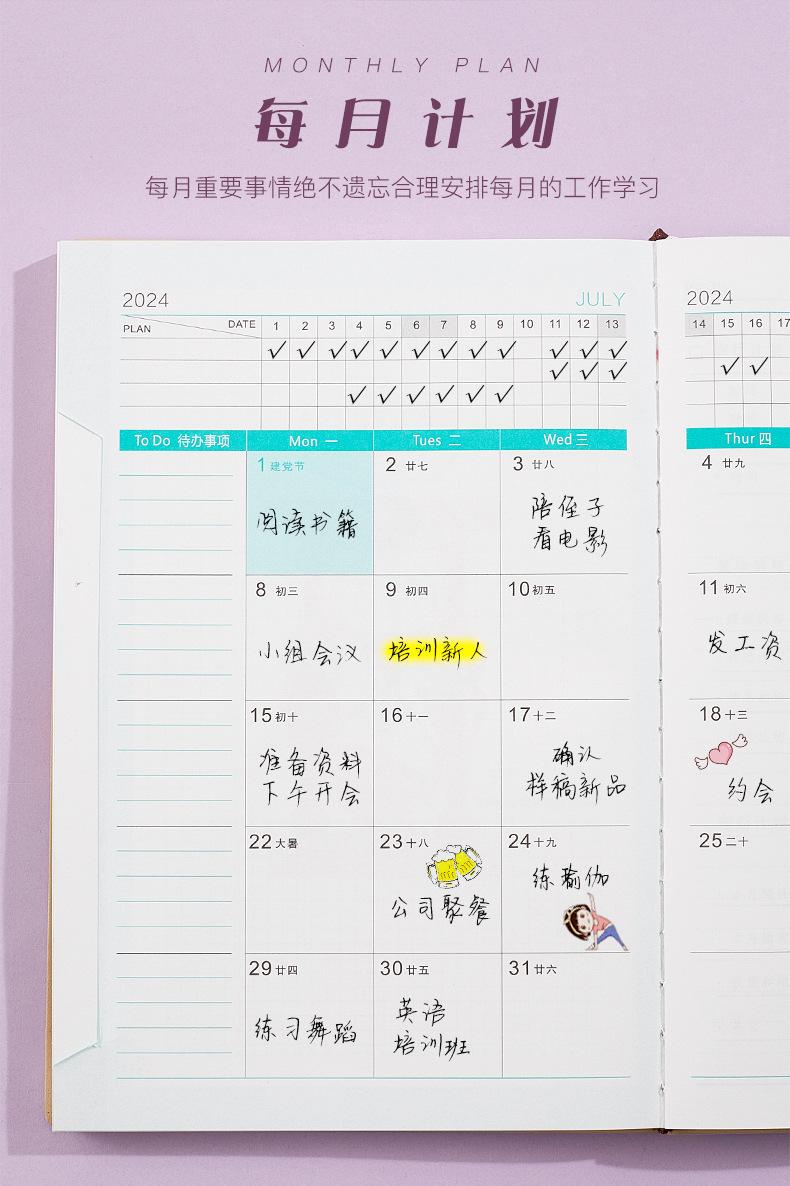 MONTHLY PLAN
每月计划
每月重要事情绝不遗忘合理安排每月的工作学习
2024 JULY 2024
PLAN DATE 1 2 3 4 5 6 7 8 9 10 11 12 13 14 15 16 17
✓ ✓ ✓ ✓ ✓ ✓ ✓ ✓ ✓ ✓ ✓ ✓
✓ ✓ ✓ ✓ ✓
✓ ✓ ✓ ✓ ✓ ✓
To Do 待办事项 Mon 一 Tues 二 Wed 三 Thur 四
1 建党节 2 廿七 3 廿八 4 廿九
阅读书籍 陪侄子
看电影
8 初三 9 初四 10 初五 11 初六
小组会议 培训新人 发工资
15 初十 16 十一 17 十二 18 十三
准备资料 确认
下午开会 样稿新品 约会
22 大暑 23 十八 24 十九 25 二十
公司聚餐 练瑜伽
29 廿四 30 廿五 31 廿六
练习舞蹈 英语
培训班